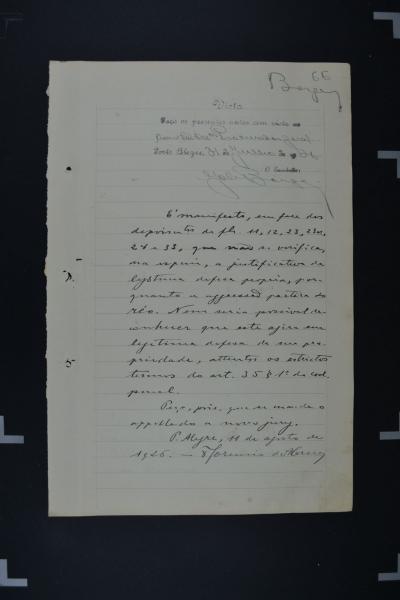 66
Vista
Faço os presentes autos com vista ao
Procurador Geral
Porto Alegre, 31 de Julho de 1926
O Escrivão:
É manifesto, em face dos
depoimentos de fls. 11, 12, 23, 23v,
27 e 33, que não se verifica,
na especie, a justificativa da
legitima defesa propria, por-
quanto a aggressão partira do
réo. Nem seria possivel re-
conhecer que este agira em
legitima defesa de sua pro-
priedade, attentos os estrictos
termos do art. 35 § 1º do cod.
penal.
Peço, pois, que se mande o
appellado a novo jury.
P. Alegre, 11 de agosto de
1926. —